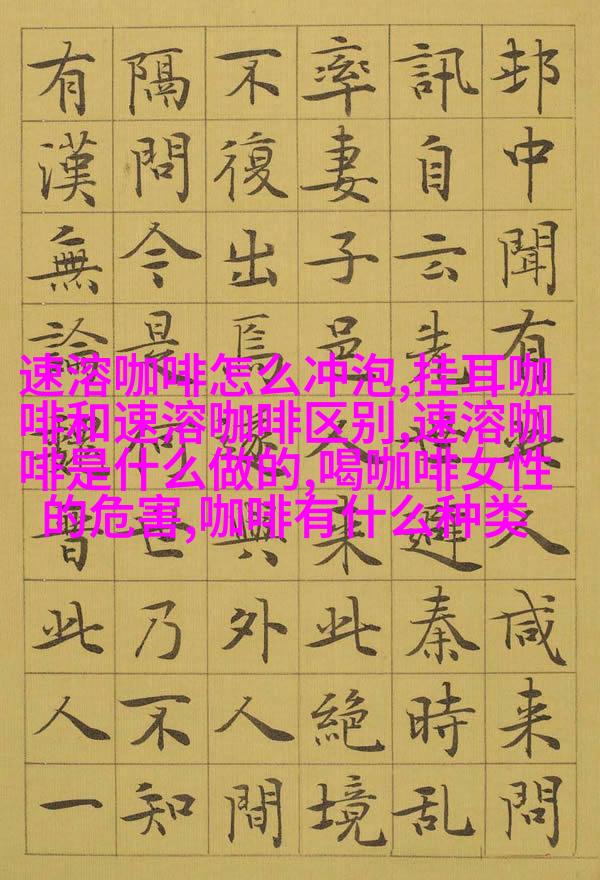 邨中聞有此人咸来問
訊自云先避秦時乱
率妻子邑人来此絶境
不復出焉遂與外人間
隔問今是何世乃不知
有漢無論晉此人一
速溶咖啡怎么冲泡,挂耳咖
啡和速溶咖啡区别,速溶咖
啡是什么做的,喝咖啡女性
的危害,咖啡有什么种类